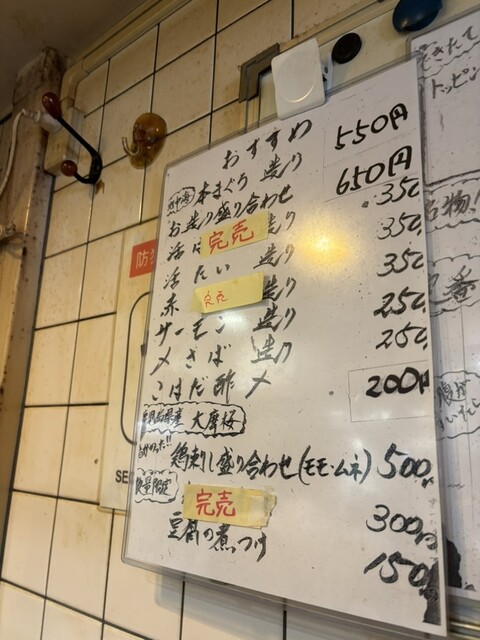 おすすめ
本まぐろ 造り 550円
お造り盛り合わせ 650円
活は 完売 造り 350
活 たい 造り 350
赤 完売 造り 350
サーモン 造り 250
〆さば 造り 250
こはだ酢〆 200円
大摩桜
鶏刺し盛り合わせ(モモ・ムネ) 500
数量限定
完売 300円
豆腐の煮つけ 150
できたて
トッピン
名物!
番
防
SE